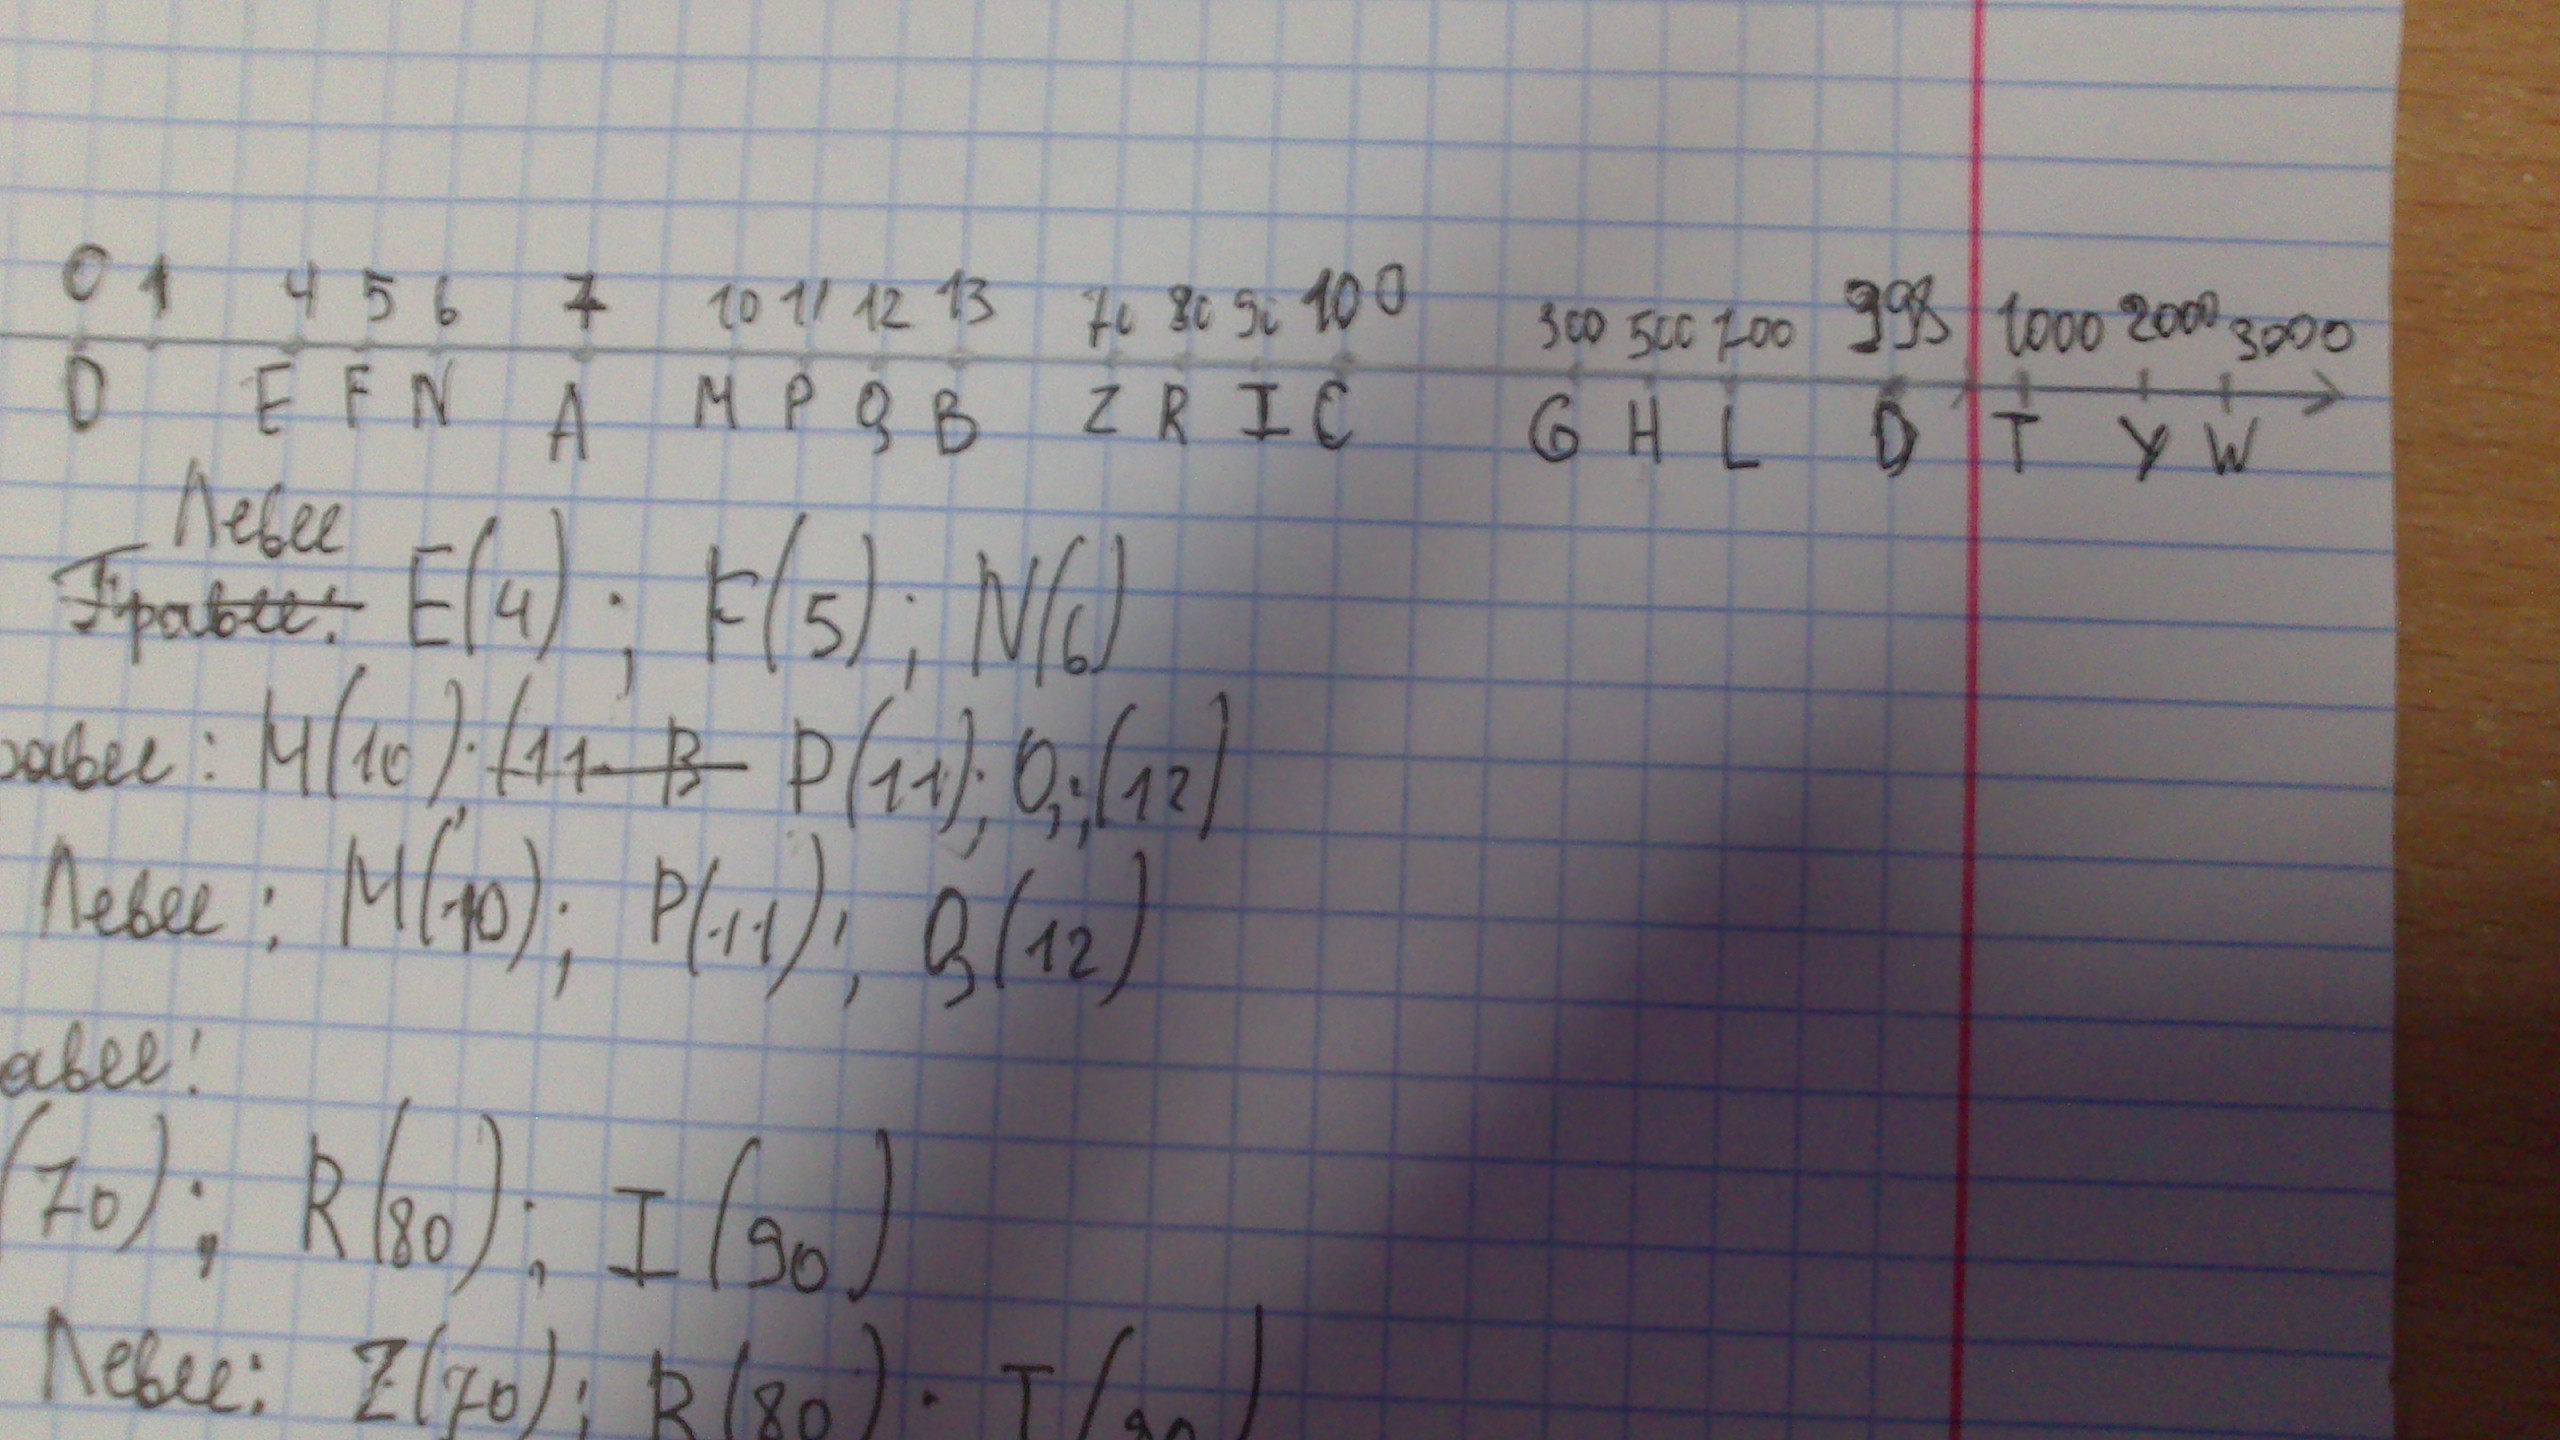 0 1 4 5 6 7 10 11 12 13 70 80 90 100 300 500 700 998 1000 2000 3000
O E F N A M P Q B Z R I C G H L D T Y W
Левее
Правее: E(4); F(5); N(6)
равее: M(10); (11 B P(11); Q;(12)
Левее: M(10); P(11); Q(12)
авее:
(70); R(80); I(90)
Левее: Z(70); R(80); I(90)